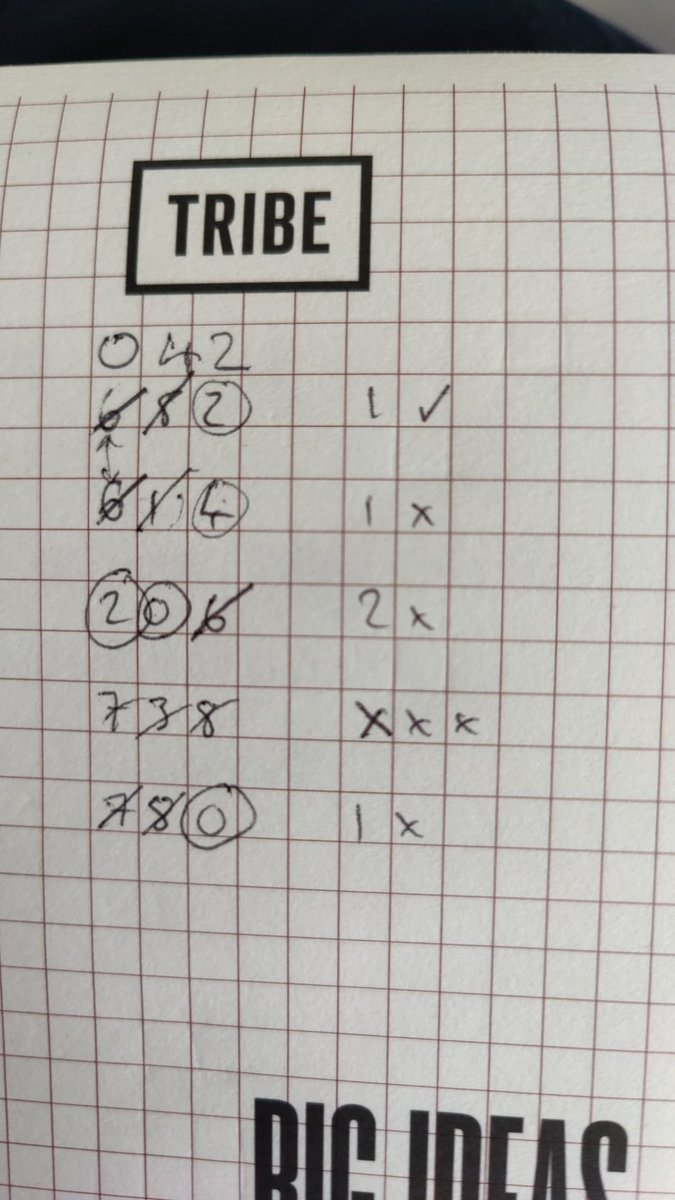 TRIBE
042
682 1 ✓
614 1 x
206 2 x
738 x x x
780 1 x
BIG IDEAS